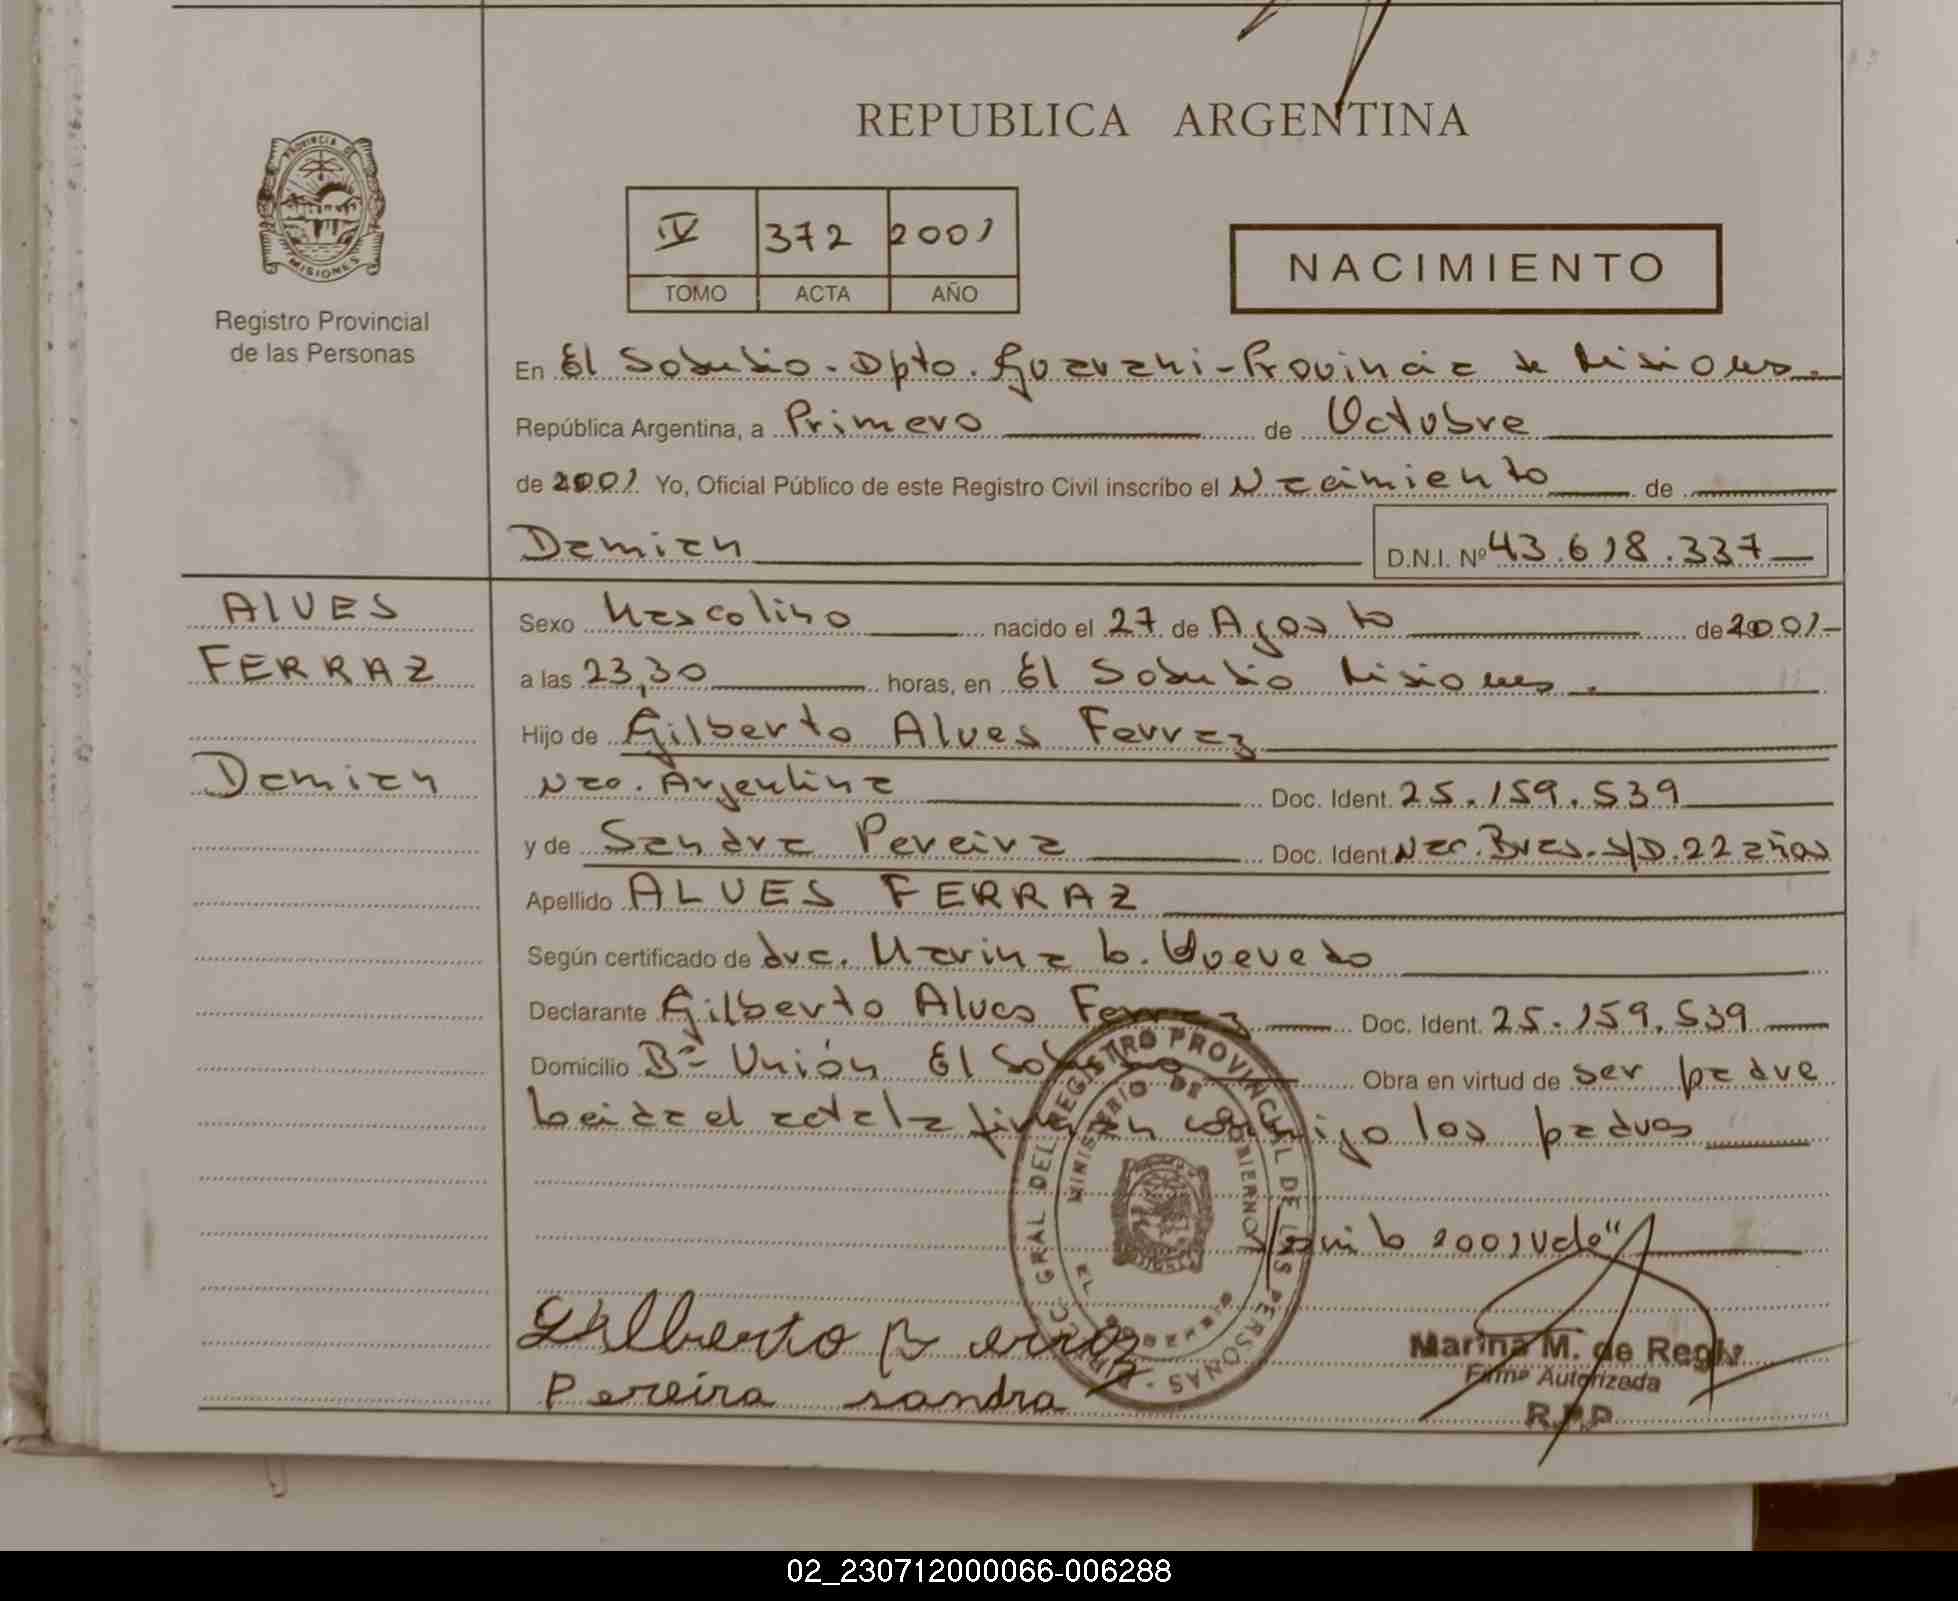 REPUBLICA ARGENTINA
PROVINCIA DE
MISIONES
Registro Provincial
de las Personas
IV 372 2001
TOMO ACTA AÑO
NACIMIENTO
En El Soberbio - Dpto. Guarani - Provincia de Misiones.
República Argentina, a Primero de Octubre
de 2001 Yo, Oficial Público de este Registro Civil inscribo el Nacimiento de
Damian D.N.I. Nº 43.618.337
ALVES
FERRAZ
Damian
Sexo Masculino nacido el 27 de Agosto de 2001
a las 23,30 horas, en El Soberbio Misiones.
Hijo de Gilberto Alves Ferraz
Nac. Argentina Doc. Ident. 25.159.539
y de Sandra Pereira Doc. Ident. Nac. Bras. S/D. 22 años
Apellido ALVES FERRAZ
Según certificado de dra. Marina b. Quevedo
Declarante Gilberto Alves Ferraz Doc. Ident. 25.159.539
Domicilio Bº Unión El Soberbio Obra en virtud de ser padre
Leida el acta la firman conmigo los padres
2001 vale"
Gilberto Ferraz
Pereira sandra
GRAL DEL REGISTRO PROVINCIAL DE LAS PERSONAS
MINISTERIO DE GOBIERNO
EL SOBERBIO
Marina M. de Regly
Firma Autorizada
R.P.P
02_230712000066-006288